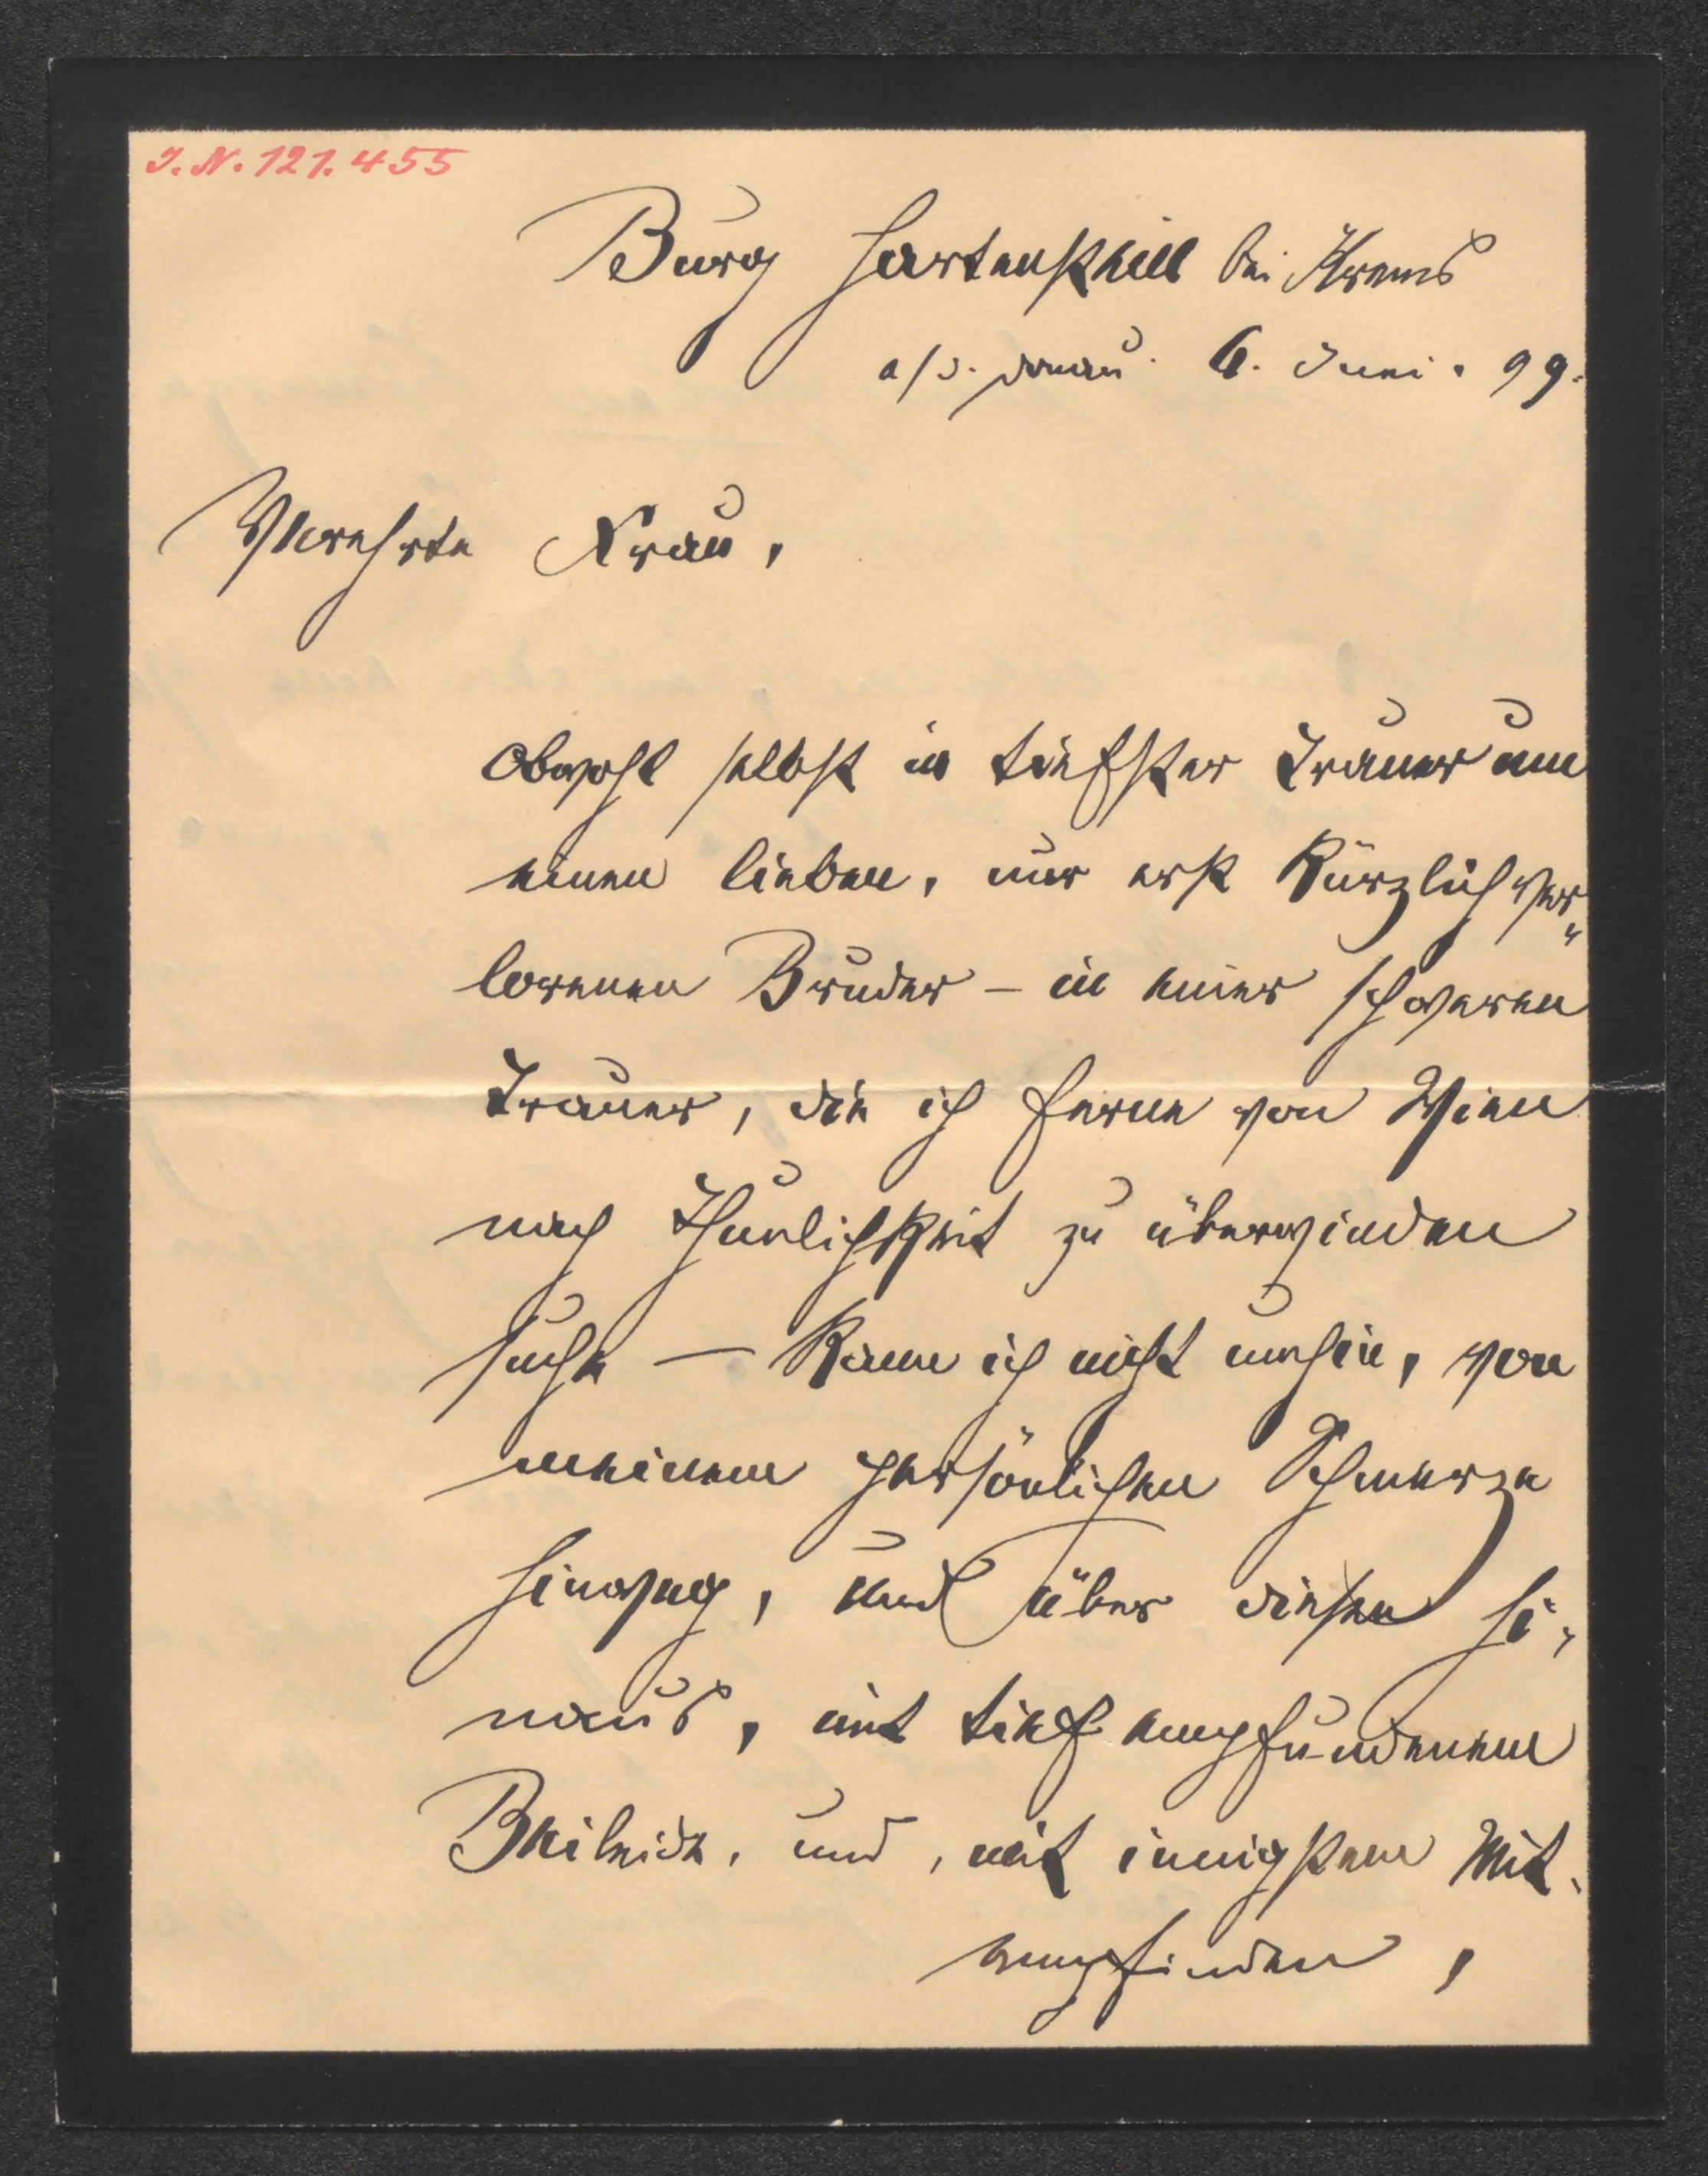 I. N. 121.455
Burg Hartenstein bei Krems
a/d. Donau. 6. Juni. 99.
Verehrte Frau,
obwohl selbst in tiefster Trauer um
einen lieben, nur erst kürzlich ver„
lorenen Bruder – in einer schweren
Trauer, die ich ferne von Wien
nach Thunlichkeit zu überwinden
suche — kann ich nicht umhin, von
meinem persönlichen Schmerze
hinweg, und über diesen hi„
naus, mit tief empfundenem
Beileide, und, mit innigstem Mit„
empfinden,